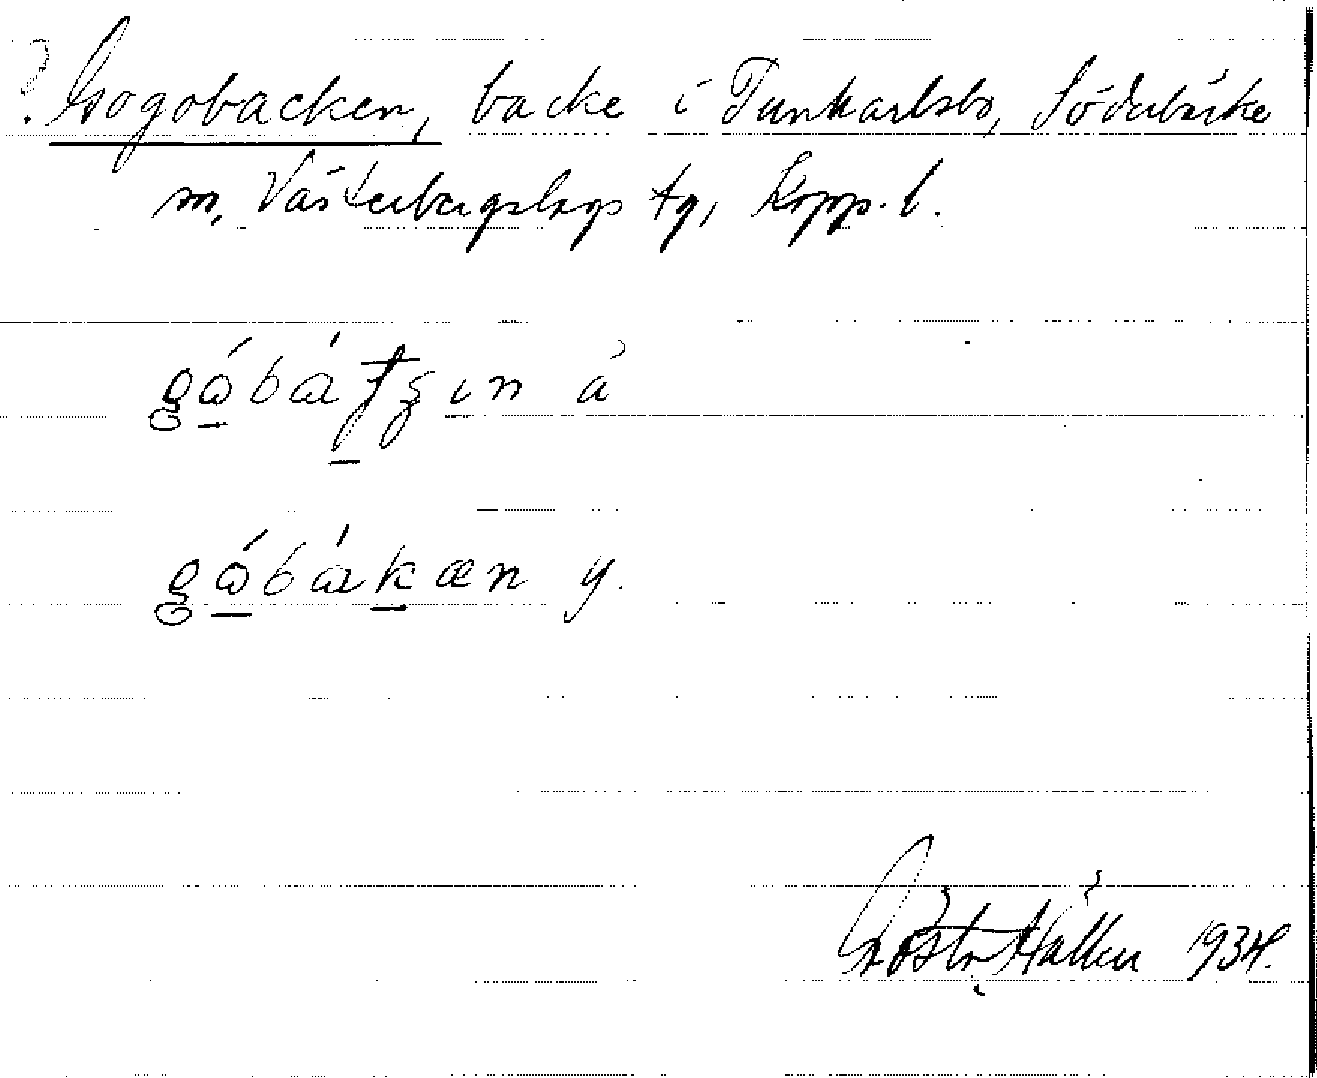 ? Gogobacken, backe i Tunkarlsbo, Söderbärke
sn, Västerbergslags tg, Kopp. l.
gɷ́bátʒın ä
gɷ́bákæn y.
Gösta Hallen 1934.